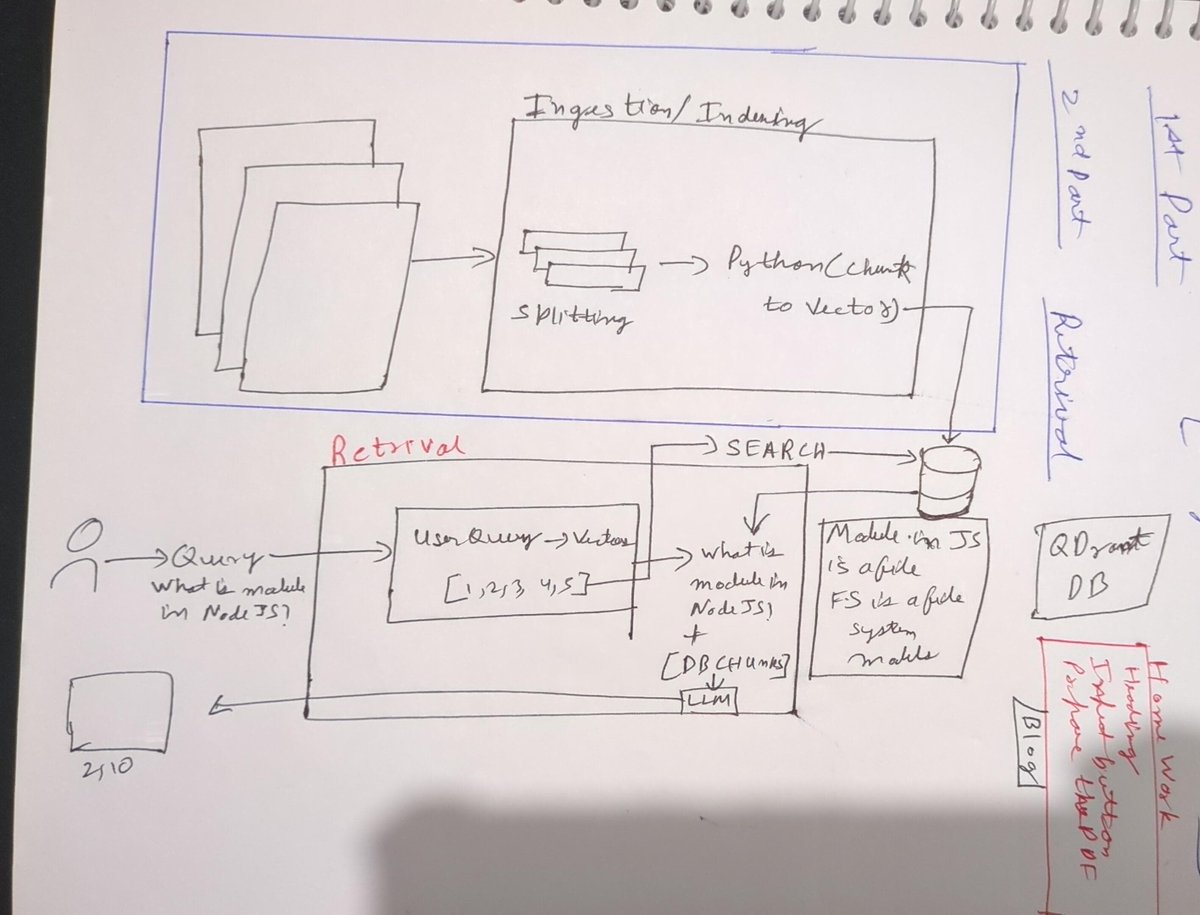 Ingestion/Indexing
splitting
Python (chunk
to vector)
Retrival
SEARCH
Query
What is module
in Node JS?
User Query → Vectors
[1, 2, 3, 4, 5]
what is
module in
Node JS?
+
[DB CHUNKS]
LLM
Module in JS
is a file
FS is a file
system
2, 10
1st Part
2nd Part
Retrival
QDrant
DB
Home Work
Heading
button
the PDF
Blog